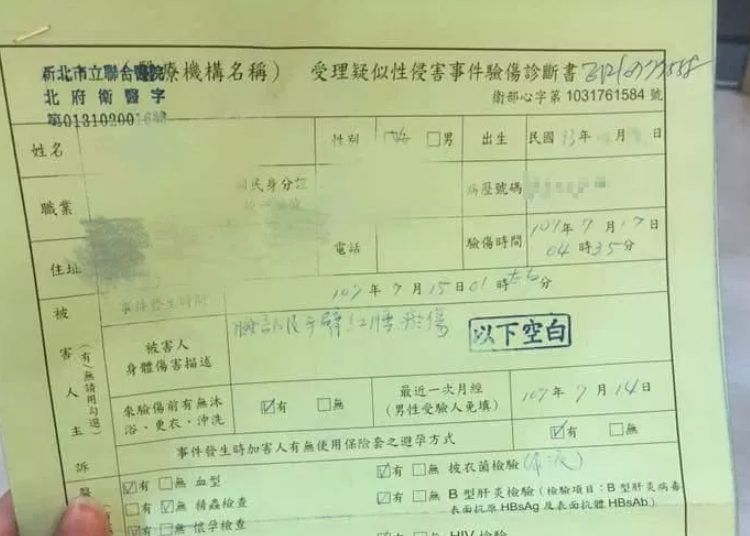 新北市立聯合醫院
療機構名稱） 受理疑似性侵害事件驗傷診斷書
北府衛醫字
衛部心字第 1031761584 號
姓名
性別 □男
出生 民國93年 月 日
職業
國民身分證
病歷號碼
住址
電話
驗傷時間 107年7月17日
04時35分
事件發生時間 107年7月15日01時左右分
被害人
身體傷害描述
以下空白
來驗傷前有無沐
浴、更衣、沖洗
☑有 □無
最近一次月經
(男性受驗人免填)
107年7月14日
事件發生時加害人有無使用保險套之避孕方式
☑有 □無
被害人主訴
(有/無請用勾選)
☑有 □無 血型
☑有 □無 披衣菌檢驗
□有 ☑無 精蟲檢查
☑有 □無 B型肝炎檢驗（檢驗項目：B型肝炎病毒
表面抗原HBsAg及表面抗體HBsAb）
☑有 □無 懷孕檢查
HIV檢驗